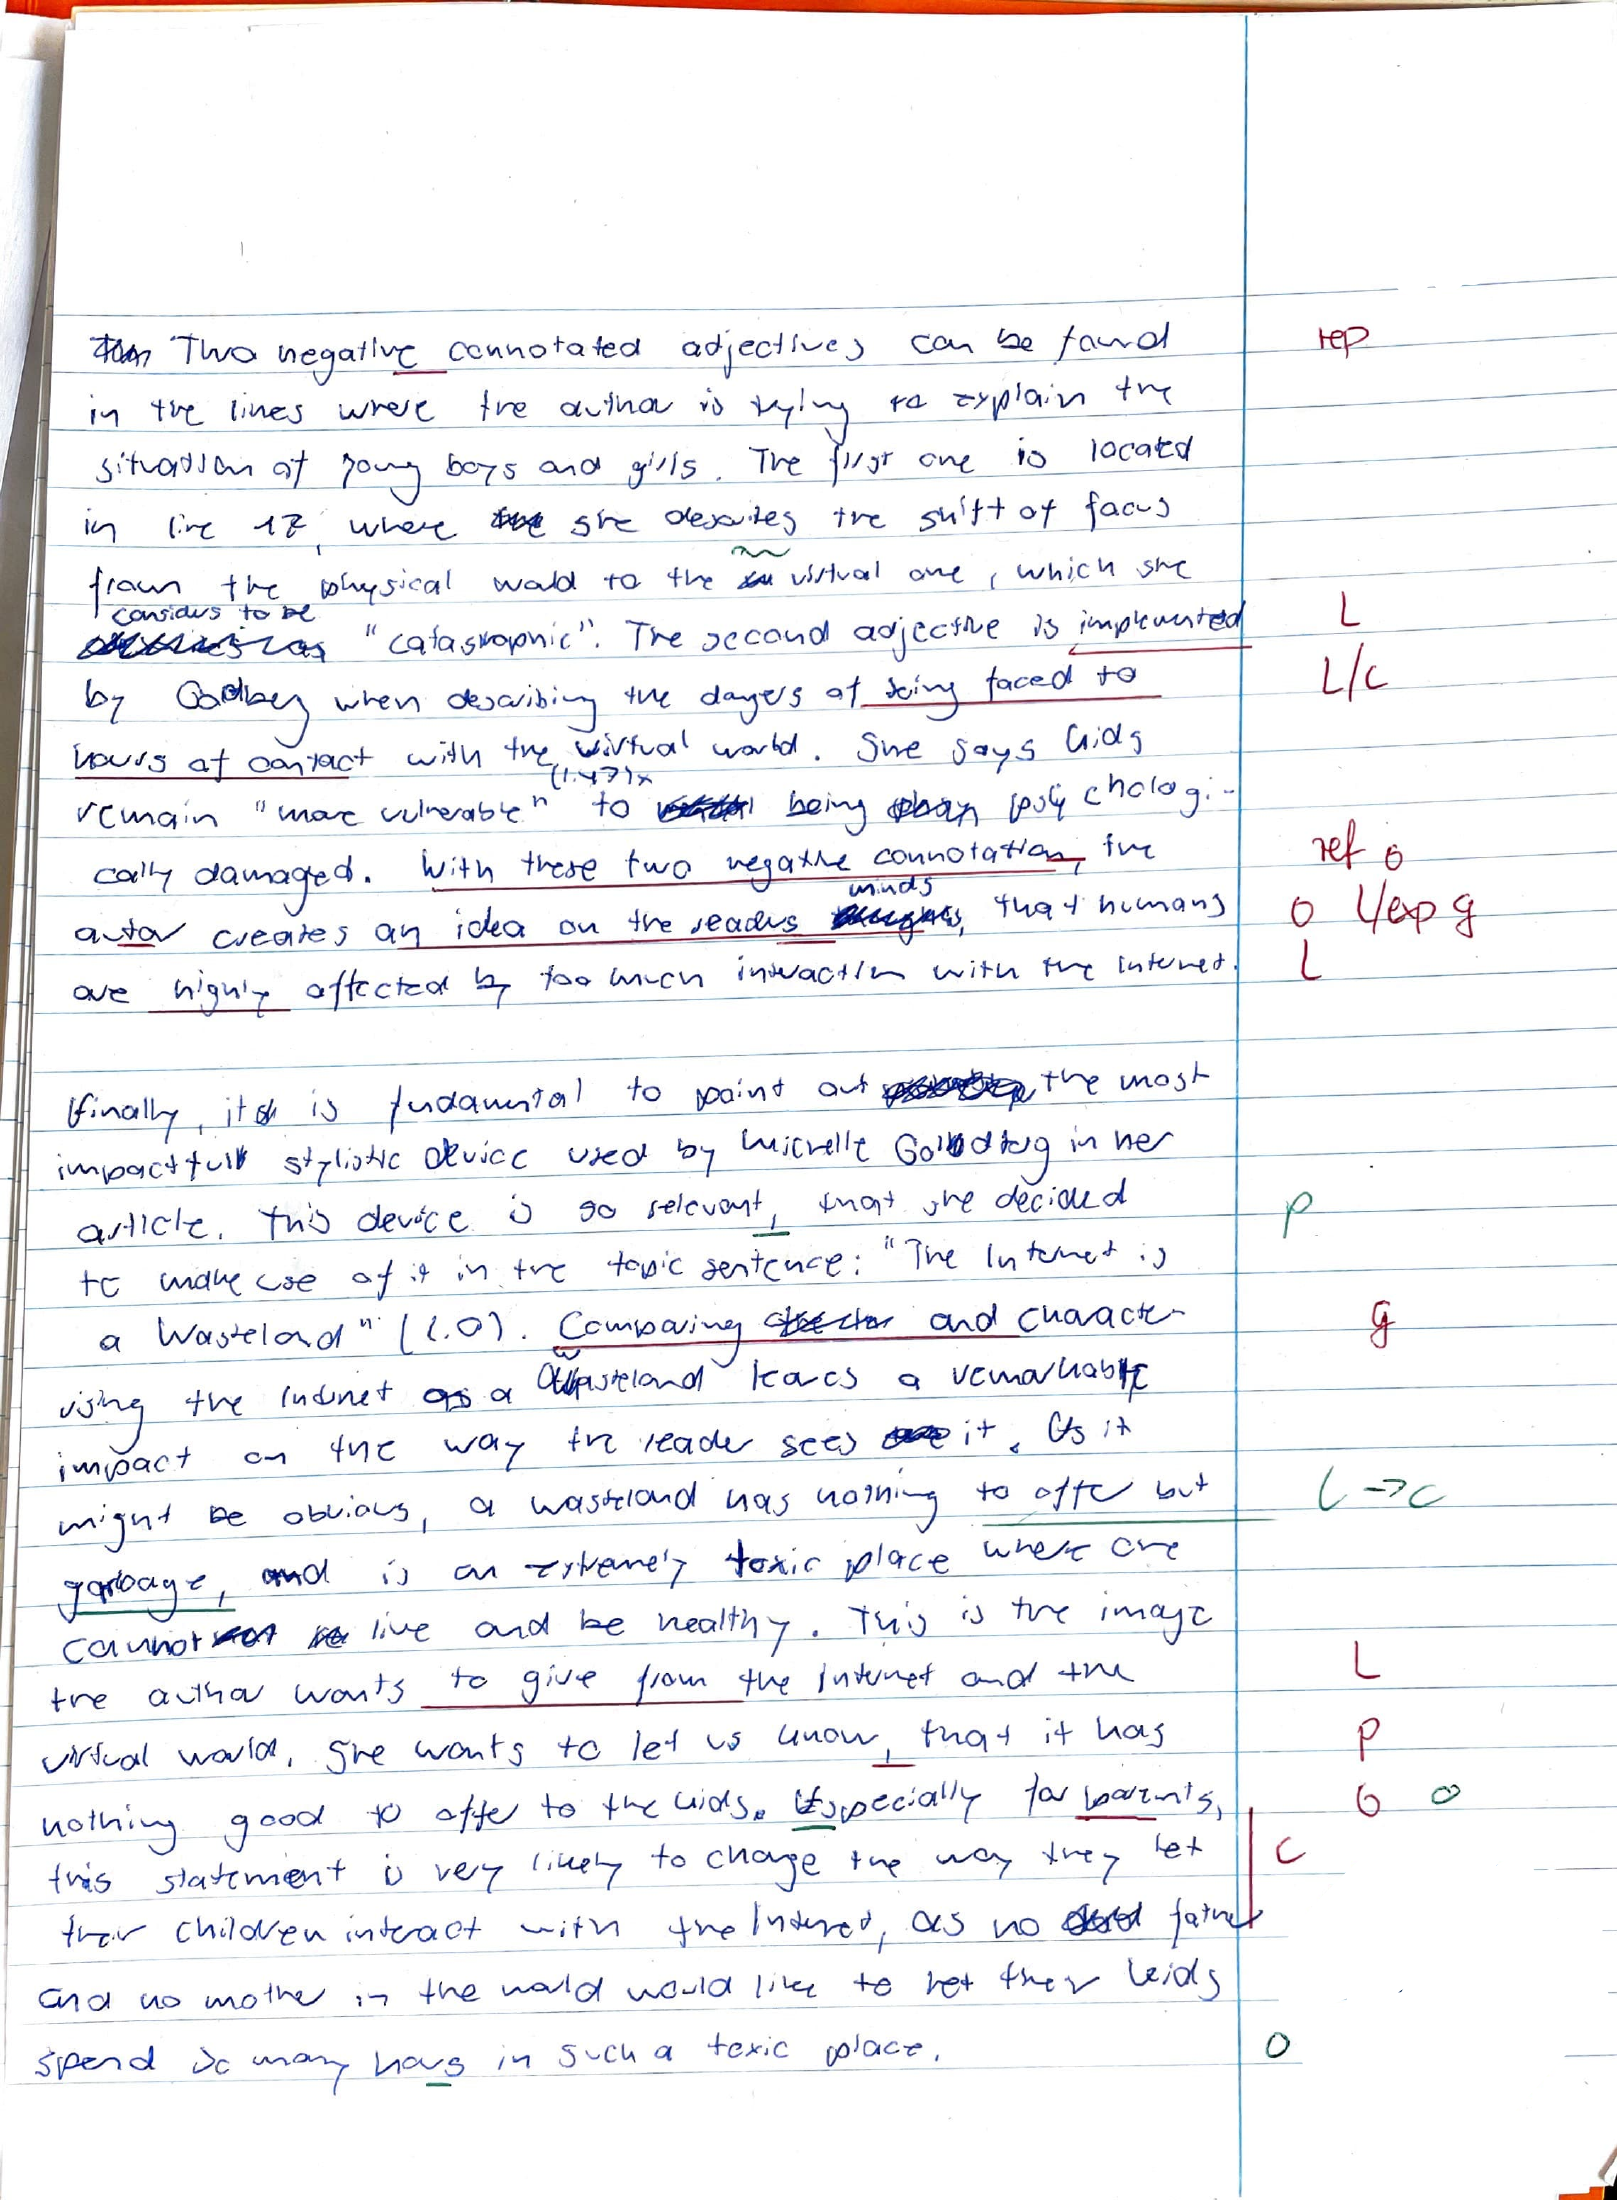 Two negative connotated adjectives can be found rep
in the lines where the author is trying to explain the
situation of young boys and girls. The first one is located
in line 17, where she describes the shift of focus
from the physical world to the virtual one, which she
considers to be
"catastrophic". The second adjective is implemented L
by Goldberg when describing the dangers of being faced to L/C
hours of contact with the virtual world. She says kids
(l.47)
remain "more vulnerable" to being psychologi-
cally damaged. With these two negative connotation, the ref o
minds
autor creates an idea on the readers that humans o L/exp g
are highly affected by too much interaction with the Internet. L
Finally, it is fundamental to point out the most
impactfull stylistic device used by Michelle Goldberg in her
article. This device is so relevant, that she decided P
to make use of it in the topic sentence: "The Internet is
a Wasteland" (l.0). Comparing and characte- g
rising the Internet as a wasteland leaves a remarkable
impact on the way the reader sees it. As it
might be obvious, a wasteland has nothing to offer but L → C
garbage, and is an extremely toxic place where one
cannot live and be healthy. This is the image
the author wants to give from the Internet and the L
virtual world. She wants to let us know, that it has P
nothing good to offer to the kids. Especially for parents, G o
this statement is very likely to change the way they let C
their children interact with the Internet, as no father
and no mother in the world would like to let their kids
spend so many hours in such a toxic place. O